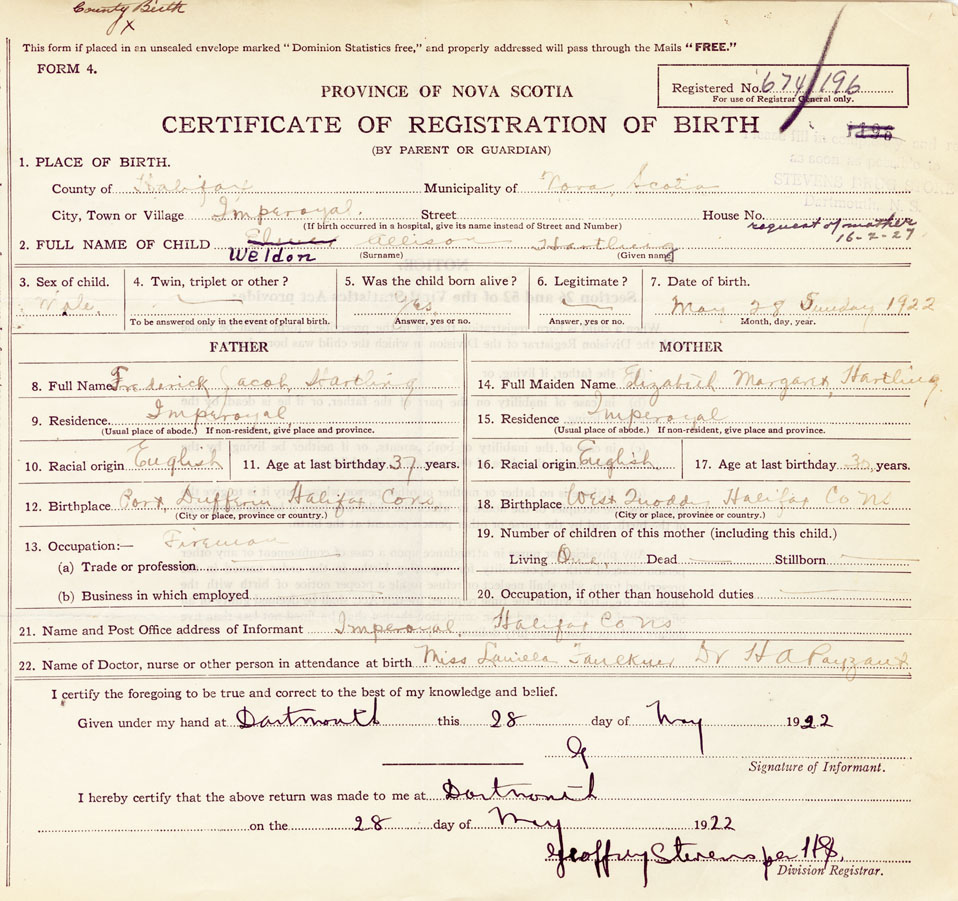 County Birth
X
This form if placed in an unsealed envelope marked "Dominion Statistics free," and properly addressed will pass through the Mails "FREE."
FORM 4.
Registered No. 674/196
For use of Registrar General only.
PROVINCE OF NOVA SCOTIA
CERTIFICATE OF REGISTRATION OF BIRTH
1196
(BY PARENT OR GUARDIAN)
as soon as possible to
STEVENS DRUG STORE
Dartmouth, N. S.
1. PLACE OF BIRTH.
County of Halifax Municipality of Nova Scotia
City, Town or Village Imperoyal. Street House No.
(If birth occurred in a hospital, give its name instead of Street and Number)
request of mother
16-2-27
2. FULL NAME OF CHILD Allison Hartling
Weldon (Surname) (Given name)
3. Sex of child. 4. Twin, triplet or other? 5. Was the child born alive? 6. Legitimate? 7. Date of birth.
Male. Yes. May 28 Sunday 1922
To be answered only in the event of plural birth. Answer, yes or no. Answer, yes or no. Month, day, year.
FATHER MOTHER
8. Full Name Frederick Jacob Hartling 14. Full Maiden Name Elizabeth Margaret Hartling
9. Residence Imperoyal 15. Residence Imperoyal
(Usual place of abode.) If non-resident, give place and province. (Usual place of abode.) If non-resident, give place and province.
10. Racial origin English 11. Age at last birthday 37 years. 16. Racial origin English 17. Age at last birthday years.
12. Birthplace Port Dufferin Halifax Co NS 18. Birthplace West Quoddy Halifax Co NS
(City or place, province or country.) (City or place, province or country.)
13. Occupation:— Fireman 19. Number of children of this mother (including this child.)
(a) Trade or profession Living One. Dead Stillborn
(b) Business in which employed 20. Occupation, if other than household duties
21. Name and Post Office address of Informant Imperoyal, Halifax Co NS
22. Name of Doctor, nurse or other person in attendance at birth Miss Faulkner Dr H A Payzant
I certify the foregoing to be true and correct to the best of my knowledge and belief.
Given under my hand at Dartmouth this 28 day of May 1922
G
Signature of Informant.
I hereby certify that the above return was made to me at Dartmouth
on the 28 day of May 1922
Geoffrey Stevens per
Division Registrar.